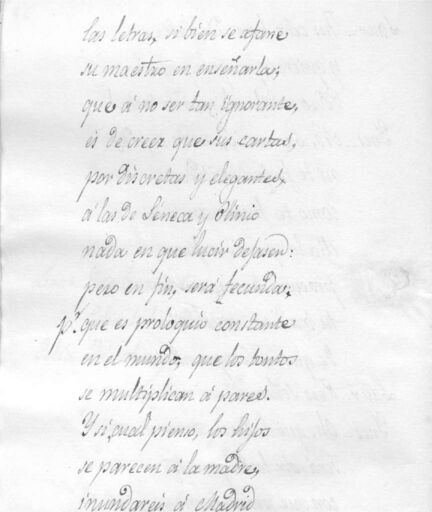 las letras, si bien se afane
su maestro en enseñarla;
que á no ser tan ignorante,
es de creer que sus cartas,
por discretas y elegantes,
á las de Séneca y Plinio
nada en que lucir dejasen:
pero en fin, será fecunda;
pr. que es proloquio constante
en el mundo, que los tontos
se multiplican á pares.
Y si, cual pienso, los hijos
se parecen á la madre,
inundareis á Madrid